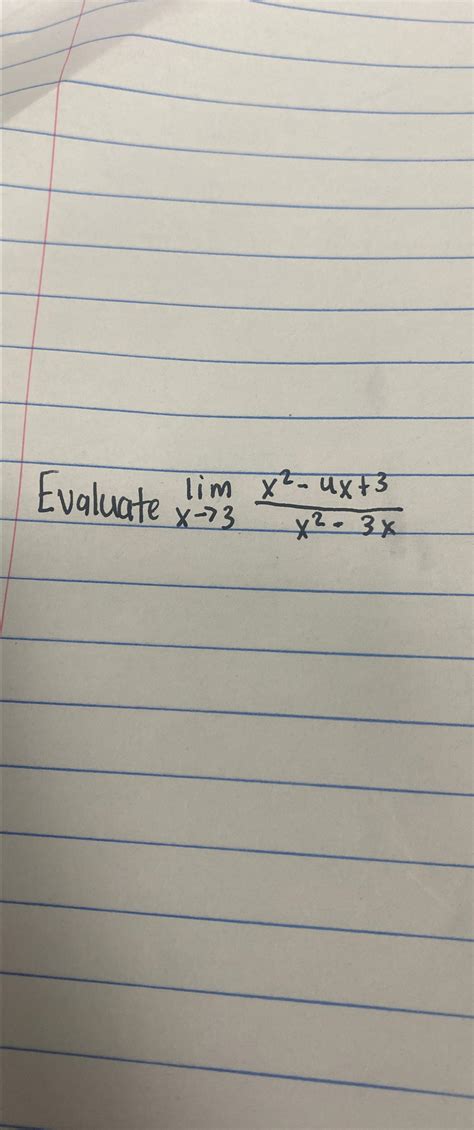 Evaluate lim x→3 x²-4x+3 / x²-3x